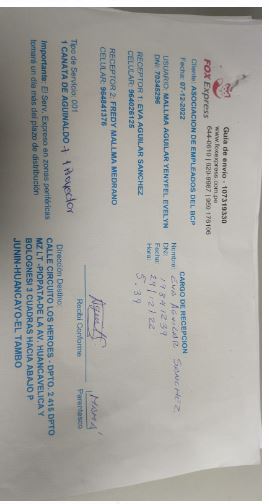 FOX Express
Guía de envío : 107319330
www.foxexpress.com.pe
644-0610 | 020-8987 | 905 176106
Cliente: ASOCIACION DE EMPLEADOS DEL BCP
Fecha: 07-12-2022
USUARIO: MALLMA AGUILAR YENYFEL EVELYN
DNI: 70345296
RECEPTOR 1: EVA AGUILAR SANCHEZ
CELULAR: 964026125
RECEPTOR 2: FREDY MALLMA MEDRANO
CELULAR: 964841376
Tipo de Servicio: 001
1 CANATA DE AGUINALDO + 1 Proyector
Importante: El Serv. Expreso en zonas periféricas
tomará un día más del plazo de distribución
CARGO DE RECEPCION
Nombre: EVA AGUILAR SANCHEZ
DNI: 19841239
Fecha: 29/12/22
Hora: 5.39
Recibí Conforme
MAMÁ
Parentesco
Dirección Destino:
CALLE CIRCUITO LOS HEROES - DPTO. 2 415 DPTO
MZ LT -POPATA-DE LA AV. HUANCAVELICA Y
BOLOGNESI 3 CUADRAS HACIA ABAJO P
JUNIN-HUANCAYO-EL TAMBO